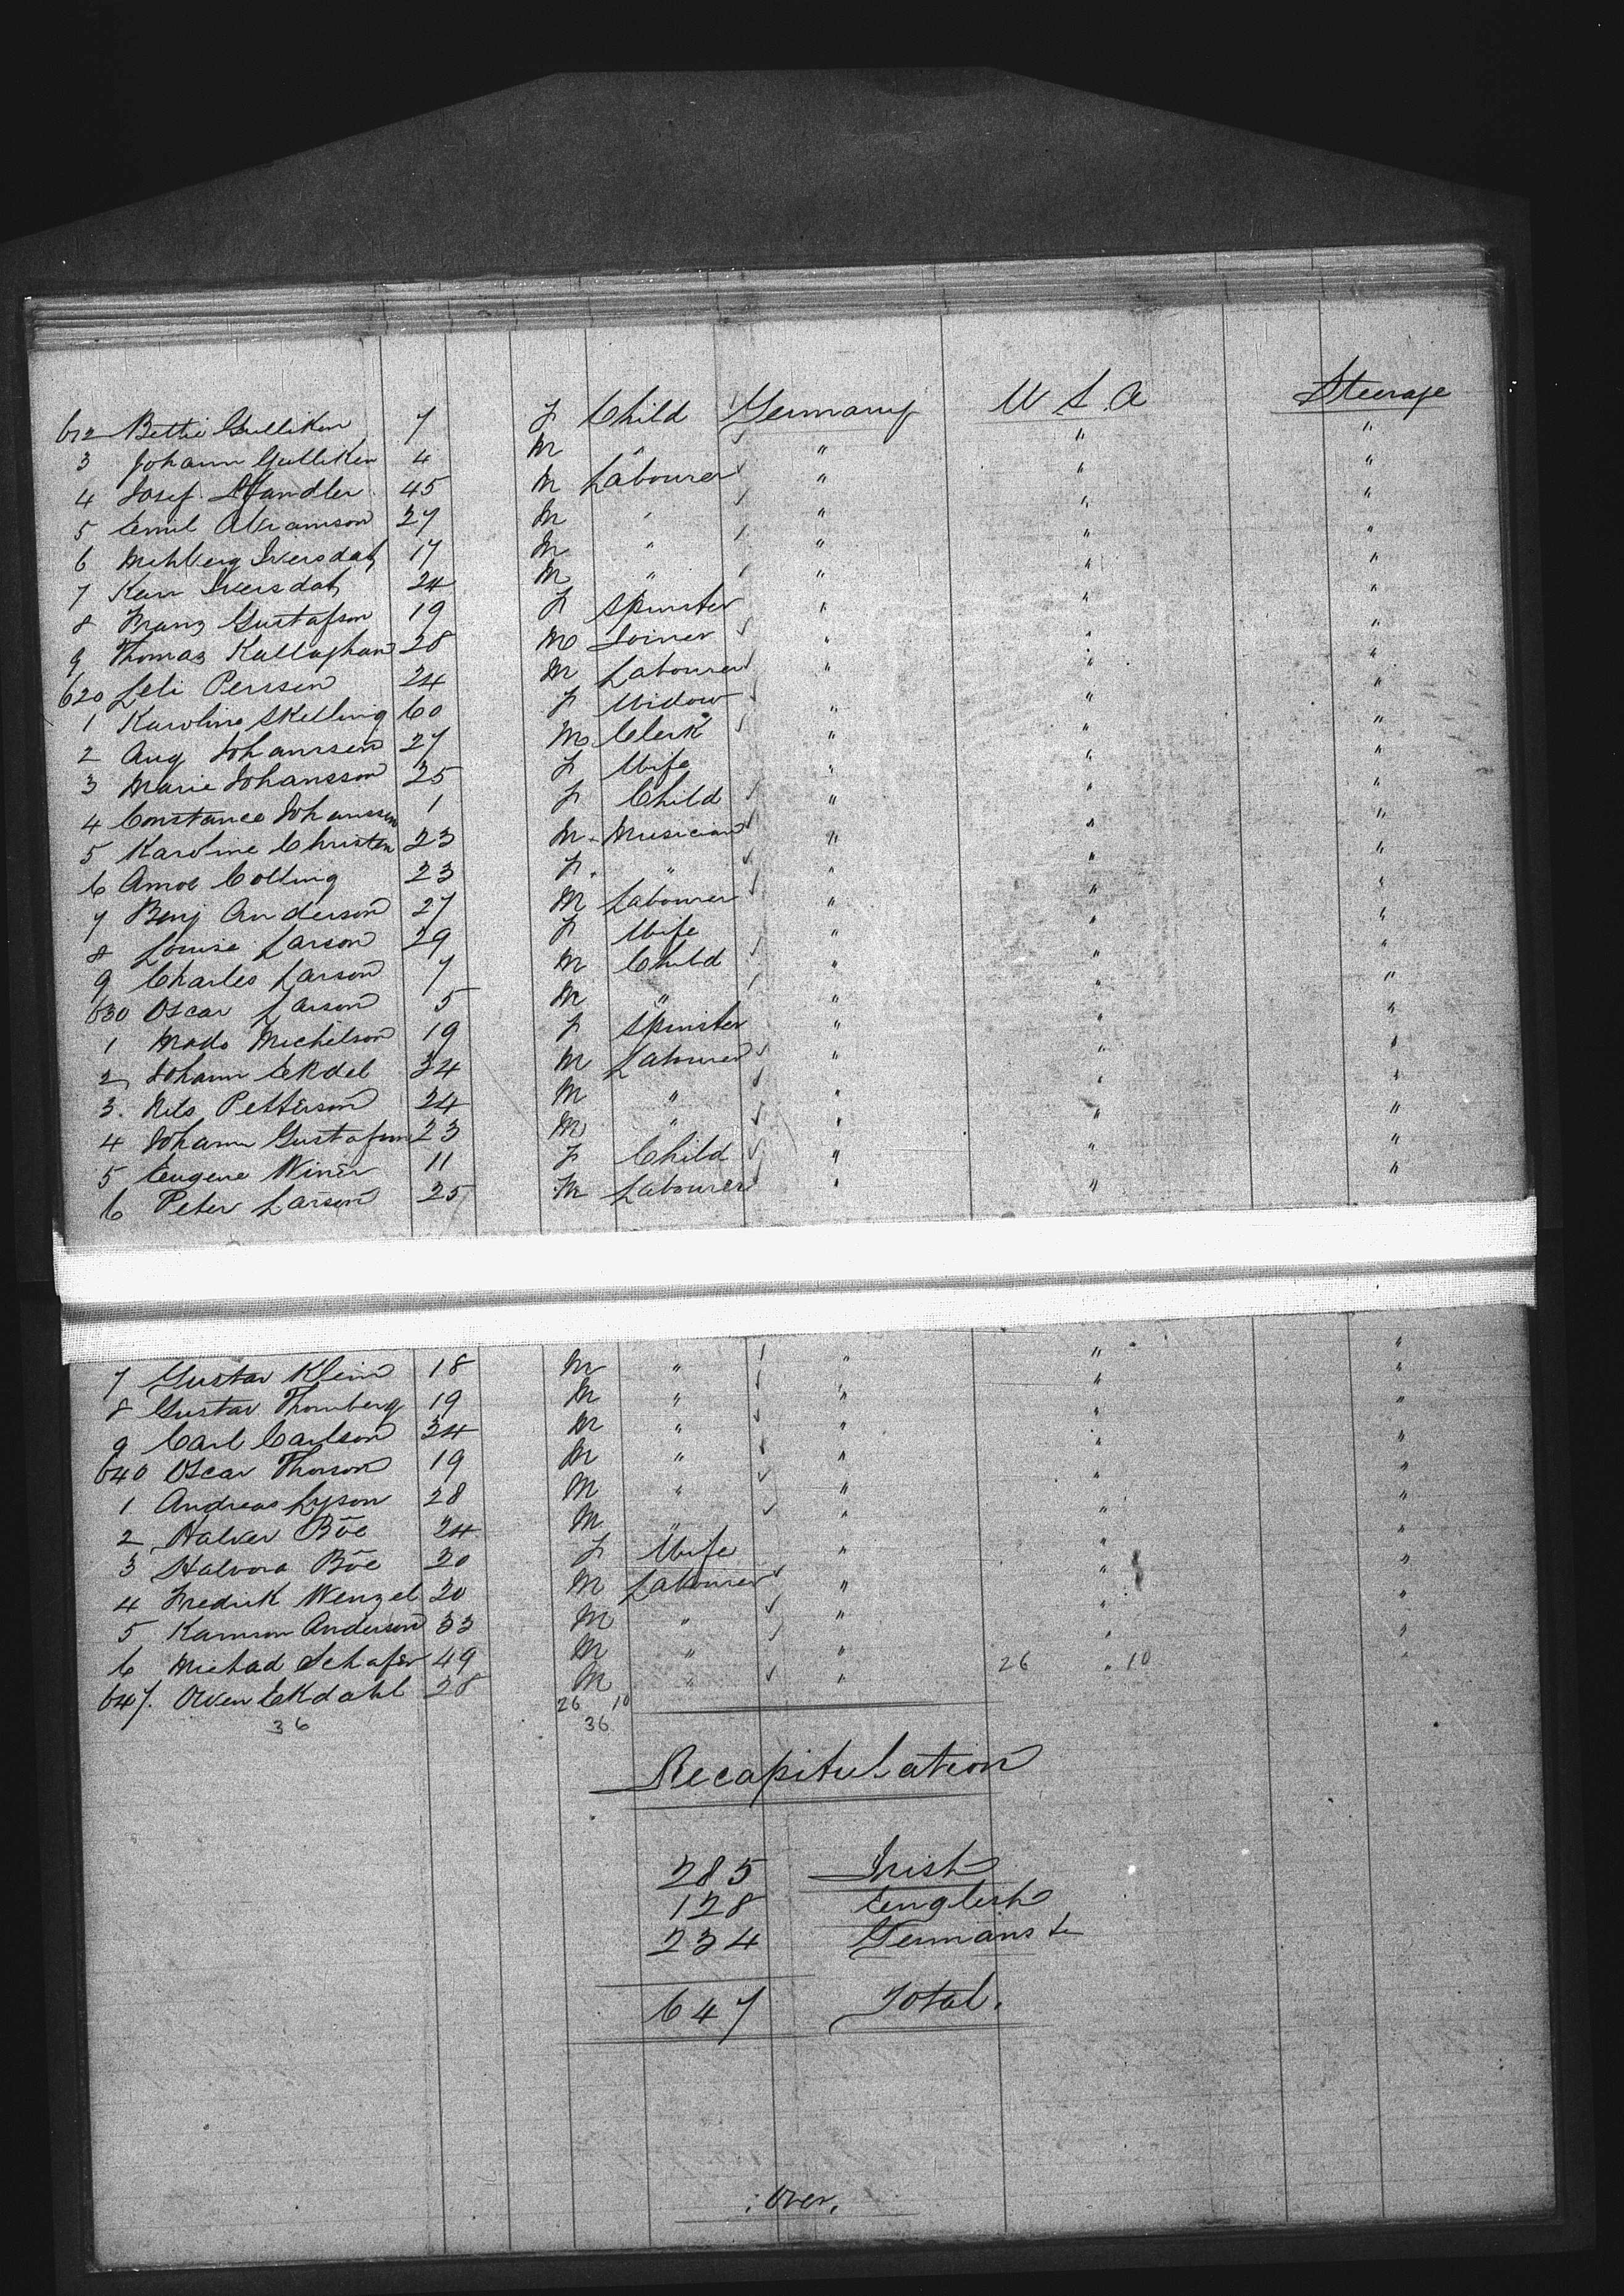 612 Bettie Gulliken 7 F Child Germany U S A Steerage
3 Johann Gulliken 4 M " " " "
4 Josef Handler 45 M Labourer " " "
5 Emil Abramson 27 M " " " "
6 Iversdat 17 M " " " "
7 Karn Iversdat 24 M " " " "
8 Franz Gustafson 19 F Spinster " " "
9 Thomas Kallaghan 28 M Joiner " " "
620 Leli Perssen 24 M Labourer " " "
1 Karoline Skelling 60 F Widow " " "
2 Aug Johanssen 27 M Clerk " " "
3 Marie Johansson 25 F Wife " " "
4 Constance Johanssen 1 F Child " " "
5 Karoline Christen 23 M Musician " " "
6 Amoe Colling 23 F. " " " "
7 Benj Anderson 27 M Labourer " " "
8 Louise Larson 29 F Wife " " "
9 Charles Larson 7 M Child " " "
630 Oscar Larson 5 M " " " "
1 Mado Michelson 19 F Spinster " " "
2 Johann Ekdel 34 M Labourer " " "
3. Nils Petterson 24 M " " " "
4 Johann Gustafson 23 M " " " "
5 Eugene Winer 11 F Child " " "
6 Peter Larsen 25 M Labourer " " "
7 Gustav Klein 18 M " " " "
8 Gustav Thornberg 19 M " " " "
9 Carl Carlson 34 M " " " "
640 Oscar Thorson 19 M " " " "
1 Andreas Lyson 28 M " " " "
2 Halver Böe 24 M " " " "
3 Halvora Böe 20 F Wife " " "
4 Fredrik Wenzel 20 M Labourer " " "
5 Kamson Anderson 33 M " " " "
6 Michad Schafer 49 M " " " "
647. Oven Ekdahl 28 M " " 26 " 10 "
36 26 10
36
Recapitulation
285 Irish
128 English
234 Germans &
647 Total.
Over.